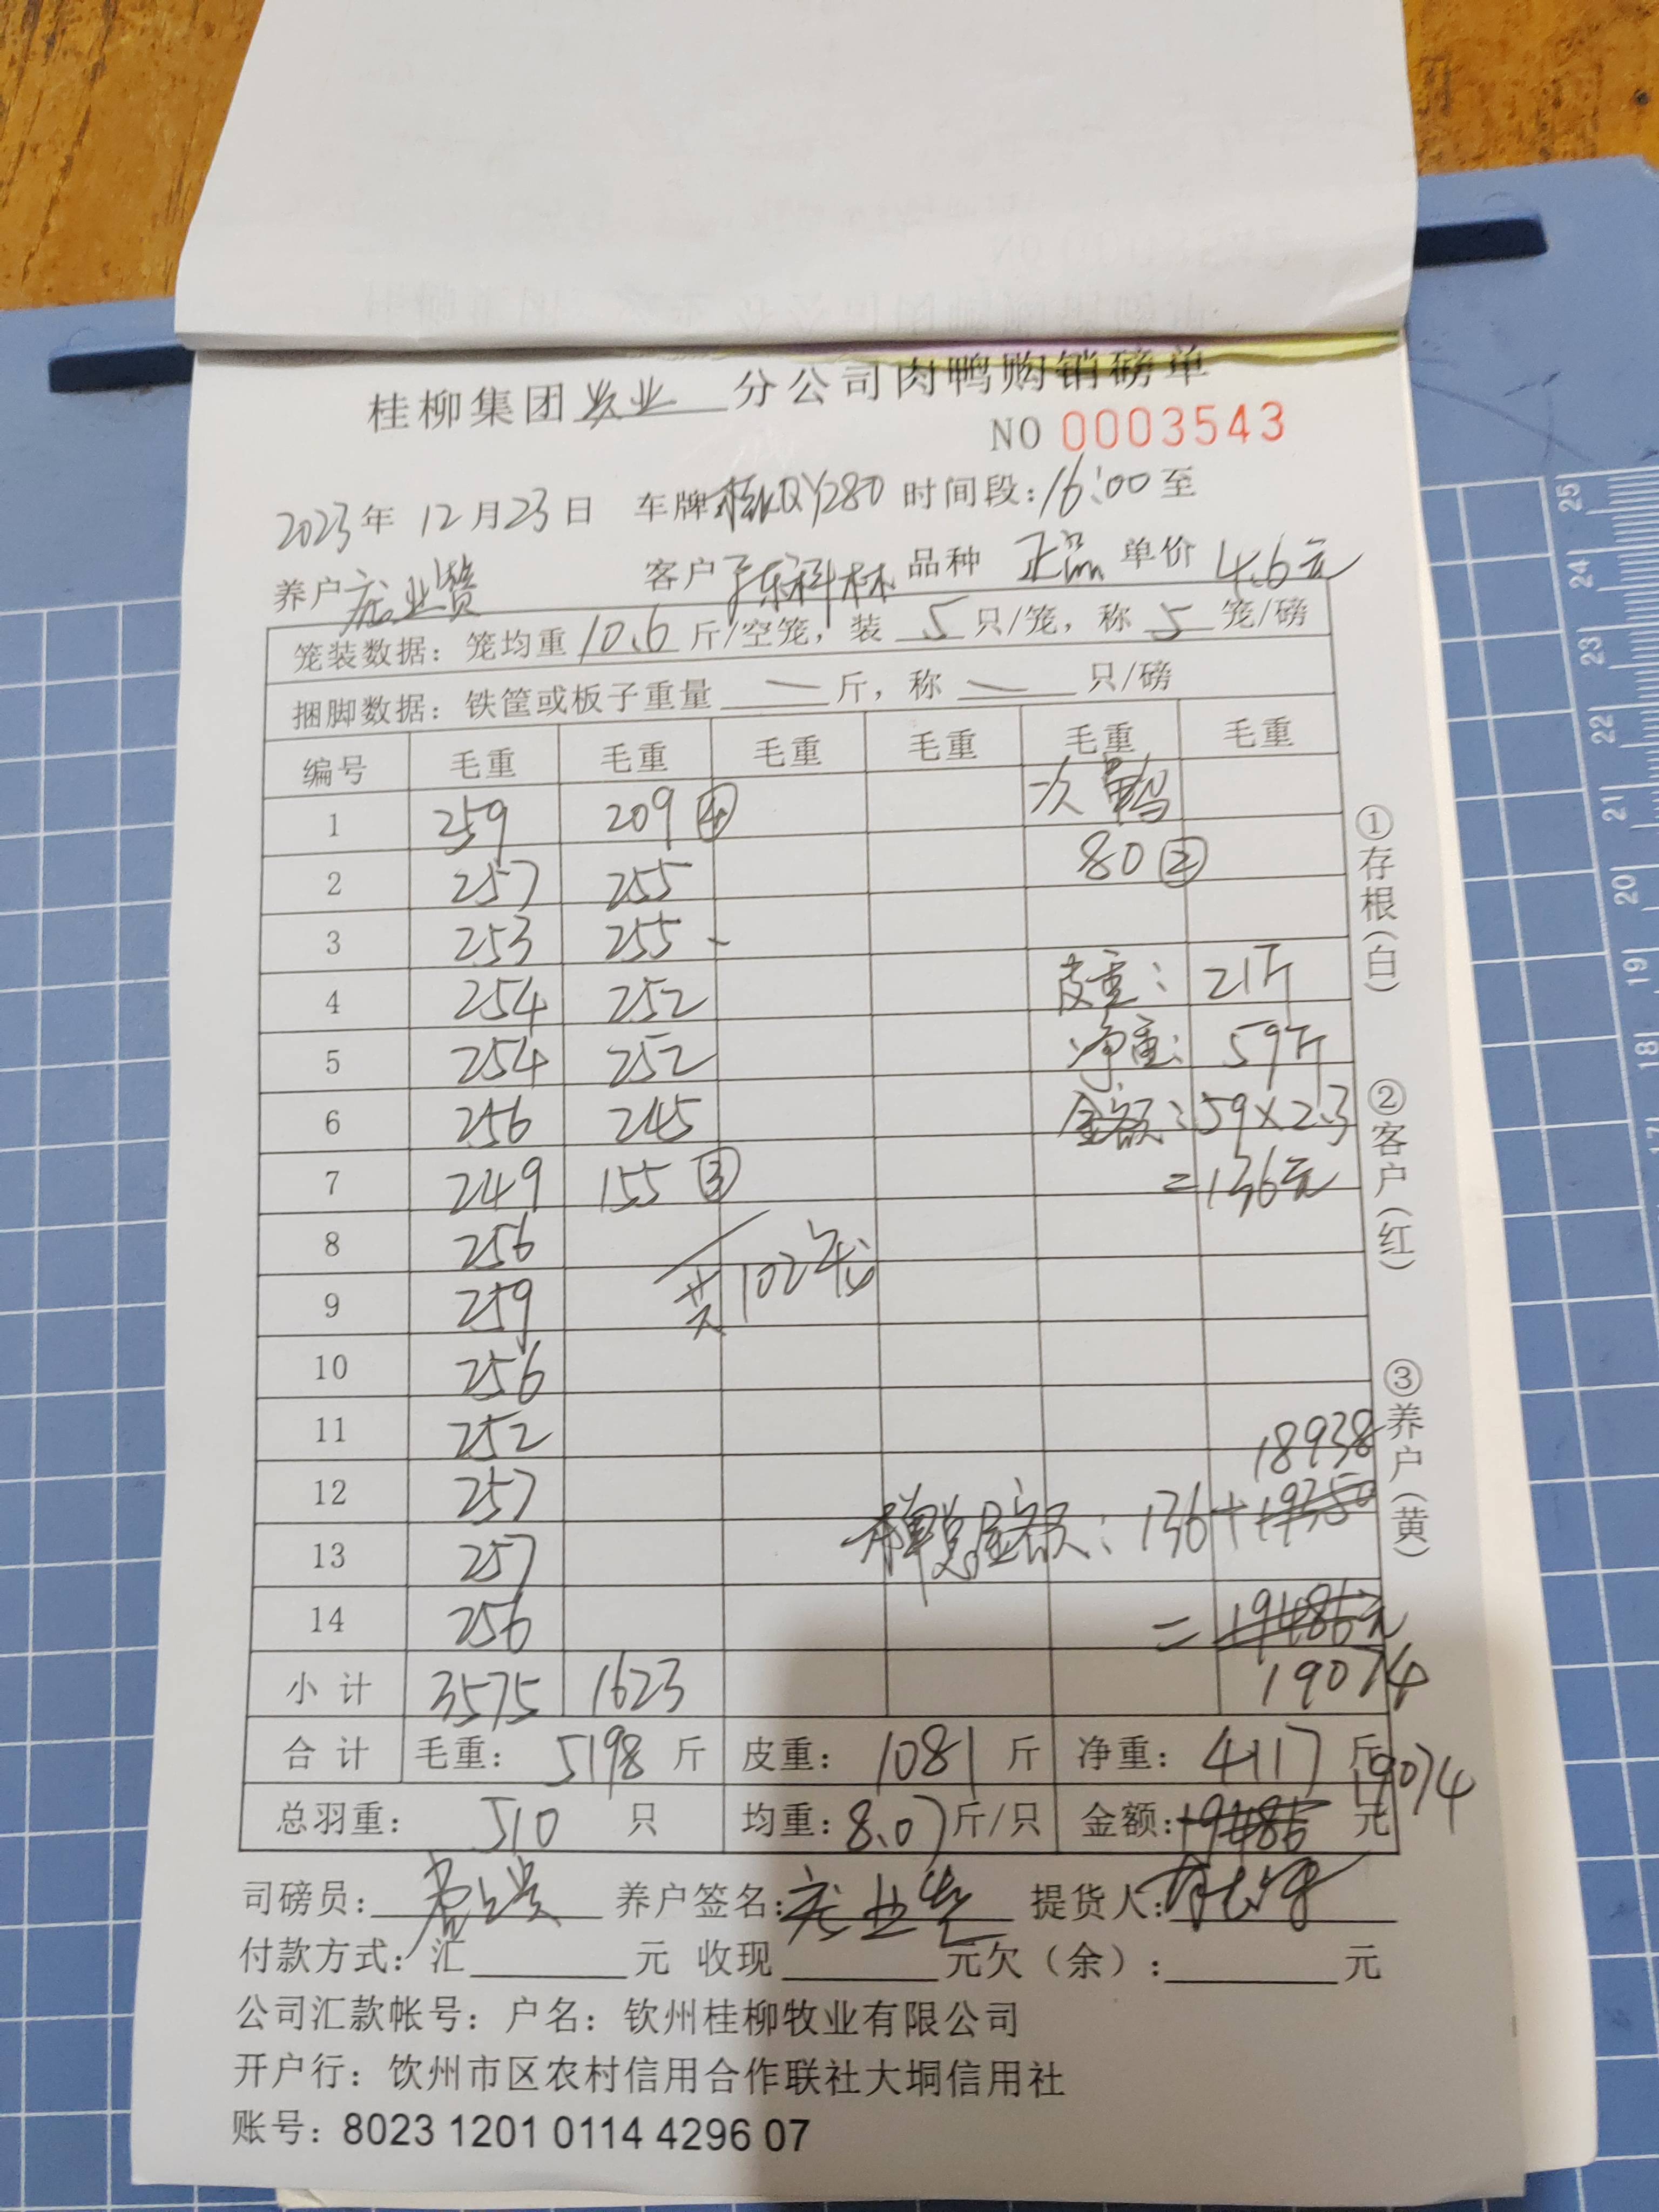 桂柳集团 牧业 分公司肉鸭购销磅单
NO 0003543
2023年 12月23日 车牌 桂KQY280 时间段:16:00至
养户 庞业赞 客户 陈科林 品种 正品 单价 4.6元
笼装数据: 笼均重 10.6 斤/空笼, 装 5 只/笼, 称 5 笼/磅
捆脚数据: 铁筐或板子重量 — 斤, 称 — 只/磅
编号 毛重 毛重 毛重 毛重 毛重 毛重
1 259 209 ④ 次鸭
2 257 255 80 ②
3 253 255
4 254 252 皮重: 21斤
5 254 252 净重: 59斤
6 256 245 金额: 59×2.3
7 249 155 ③ =136元
8 256
9 259 共102笼
10 256
11 252 18938
12 257 本单总金额: 136+19350
13 257
14 256 = 19486元
小计 3575 1623 19074
合计 毛重: 5198 斤 皮重: 1081 斤 净重: 4117 斤
19074
总羽重: 510 只 均重: 8.07 斤/只 金额: 19486 元
司磅员: 养户签名: 庞业赞 提货人:
付款方式: 汇 元 收现 元欠(余): 元
公司汇款帐号: 户名: 钦州桂柳牧业有限公司
开户行: 饮州市区农村信用合作联社大垌信用社
账号: 8023 1201 0114 4296 07
①存根(白)
②客户(红)
③养户(黄)
25
24
23
22
21
20
19
18
17